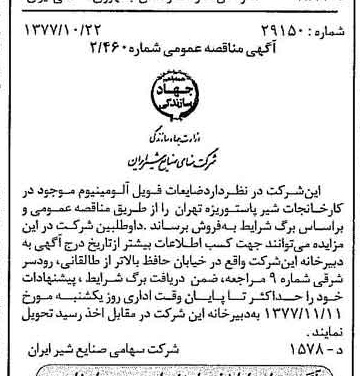 شماره: ۲۹۱۵۰ ۱۳۷۷/۱۰/۲۲
آگهی مناقصه عمومی شماره ۲/۴۶۰
جهاد
سازندگی
وزارت جهاد سازندگی
شرکت سهامی صنایع شیر ایران
این‌شرکت در نظر دارد ضایعات فویل آلومینیوم موجود در
کارخانجات شیر پاستوریزه تهران را از طریق مناقصه عمومی و
براساس برگ شرایط به‌فروش برساند. داوطلبین شرکت در این
مزایده می‌توانند جهت کسب اطلاعات بیشتر ازتاریخ درج آگهی به
دبیرخانه این‌شرکت واقع در خیابان حافظ بالاتر از طالقانی، رودسر
شرقی شماره ۹ مراجعه، ضمن دریافت برگ شرایط، پیشنهادات
خود را حداکثر تا پایان وقت اداری روز یکشنبه مورخ
۱۳۷۷/۱۱/۱۱ به‌دبیرخانه این شرکت در مقابل اخذ رسید تحویل
نمایند.
د - ۱۵۷۸ شرکت سهامی صنایع شیر ایران